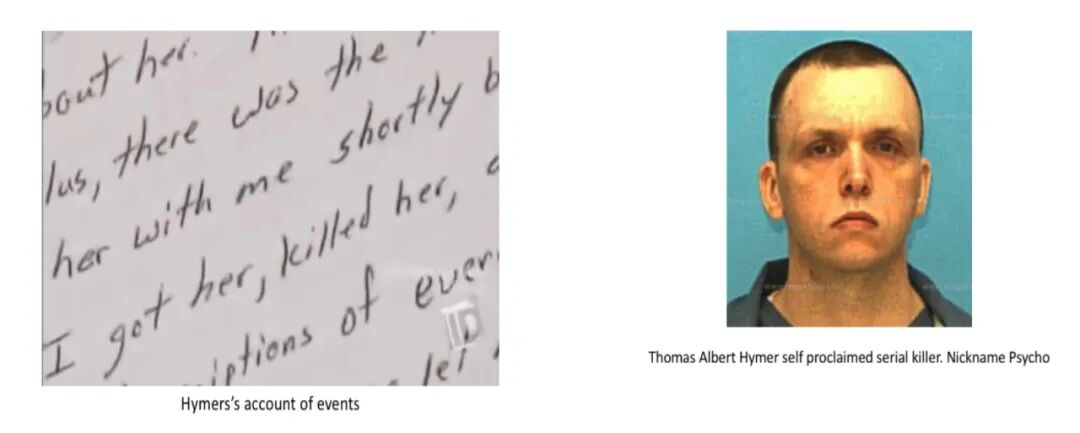 bout her.
lus, there was the
her with me shortly b
I got her, killed her,
iptions of ever
let
Hymers's account of events
Thomas Albert Hymer self proclaimed serial killer. Nickname Psycho